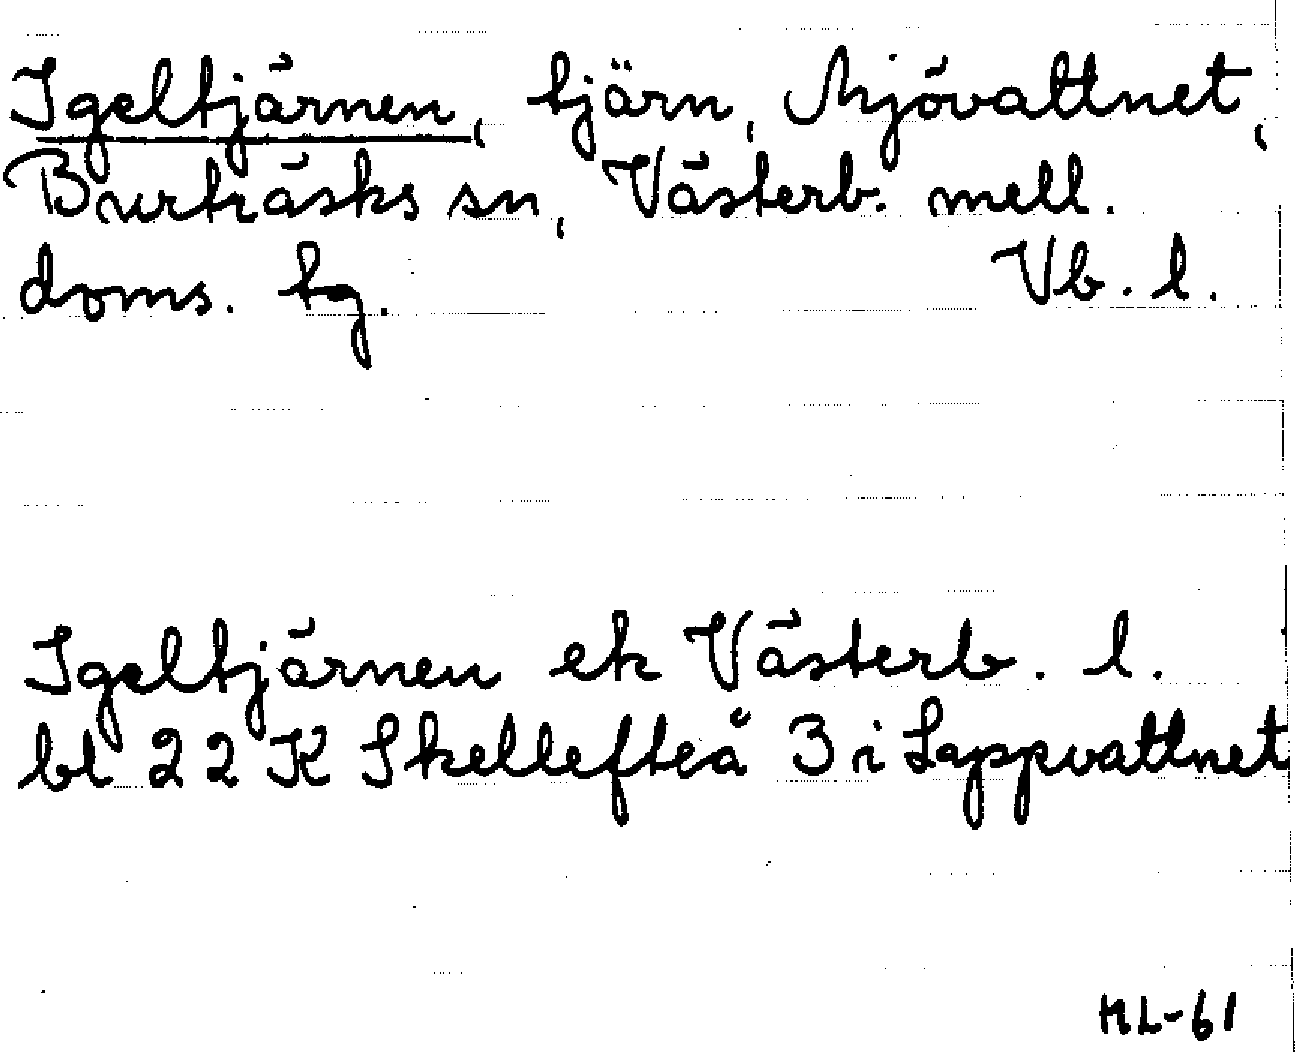 Igeltjärnen, tjärn, Mjövattnet,
Burträsks sn, Västerb. mell.
doms. tg. Vb. l.
Igeltjärnen ek Västerb. l.
bl 22 K Skellefteå 3 i Lappvattnet
ML-61